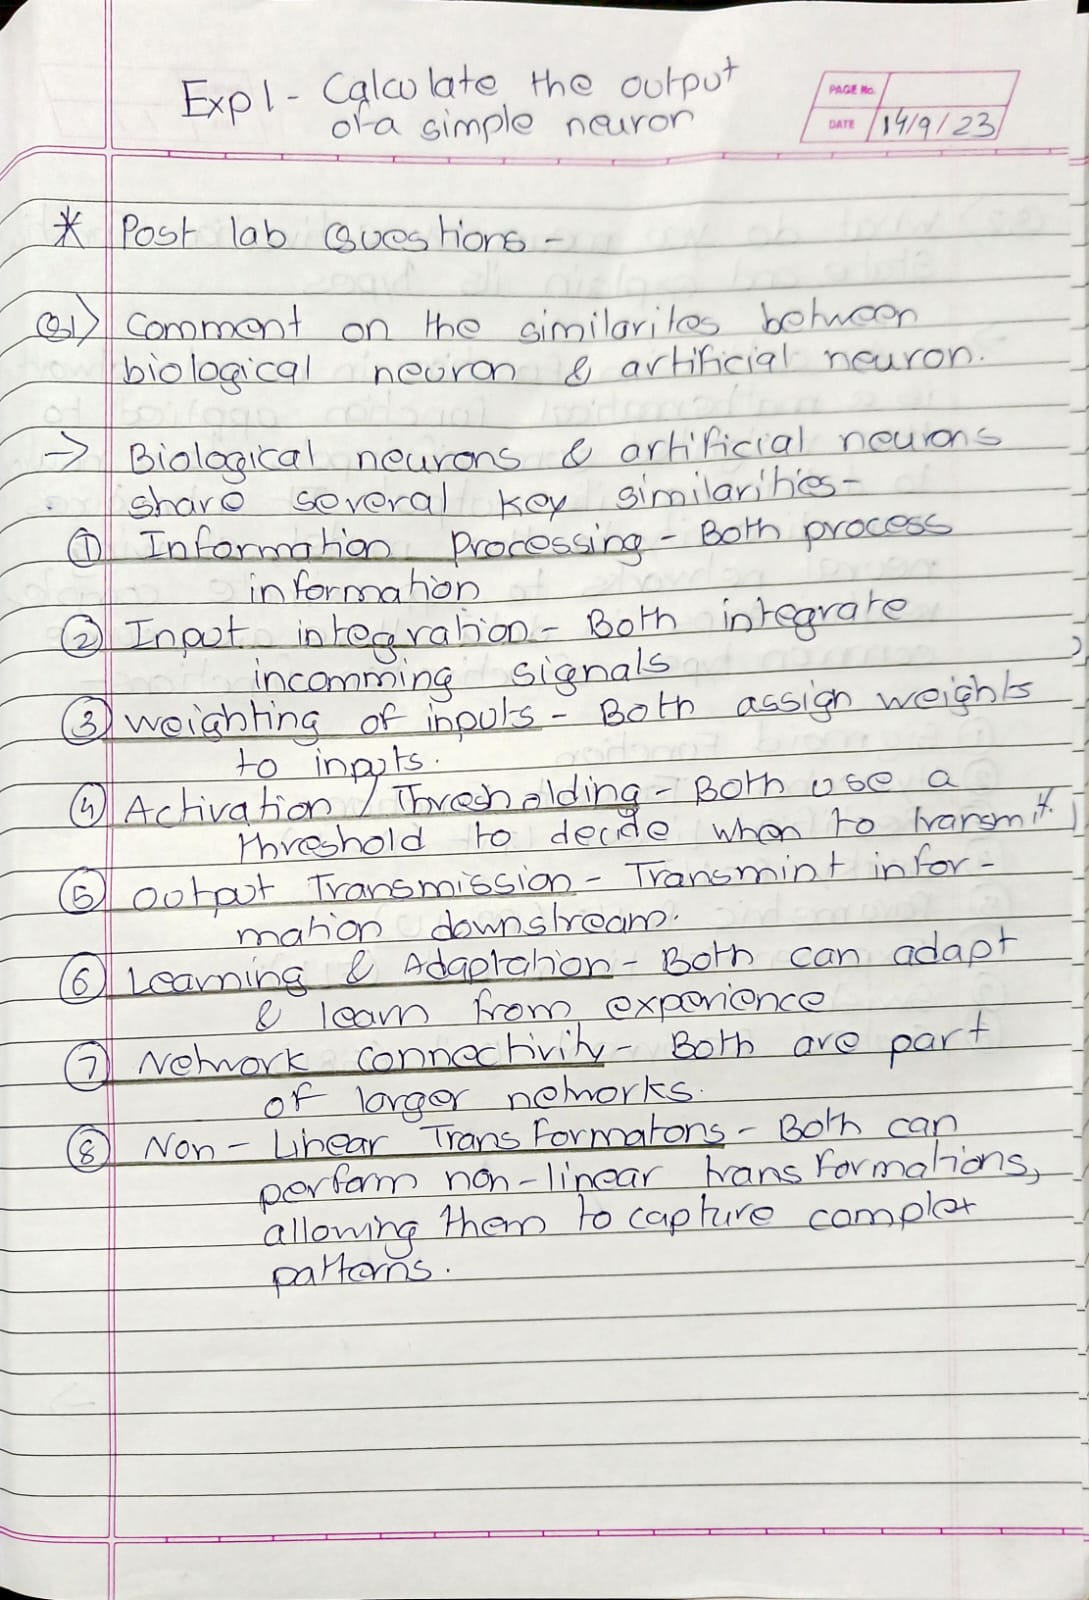 Exp 1 - Calculate the output
of a simple neuron
PAGE No.
DATE 14/9/23
* Post lab Questions -
Q1) Comment on the similarites between
biological neuron & artificial neuron.
→ Biological neurons & artificial neurons
share several key similarities -
① Information Processing - Both process
information
② Input integration - Both integrate
incomming signals
③ Weighting of inputs - Both assign weights
to inputs.
④ Activation / Thresholding - Both use a
threshold to decide when to transmit.
⑤ Output Transmission - Transmint infor-
mation downstream.
⑥ Learning & Adaptation - Both can adapt
& learn from experience
⑦ Network connectivity - Both are part
of larger networks.
⑧ Non - Linear Trans Formatons - Both can
perform non-linear transformations,
allowing them to capture complex
patterns.